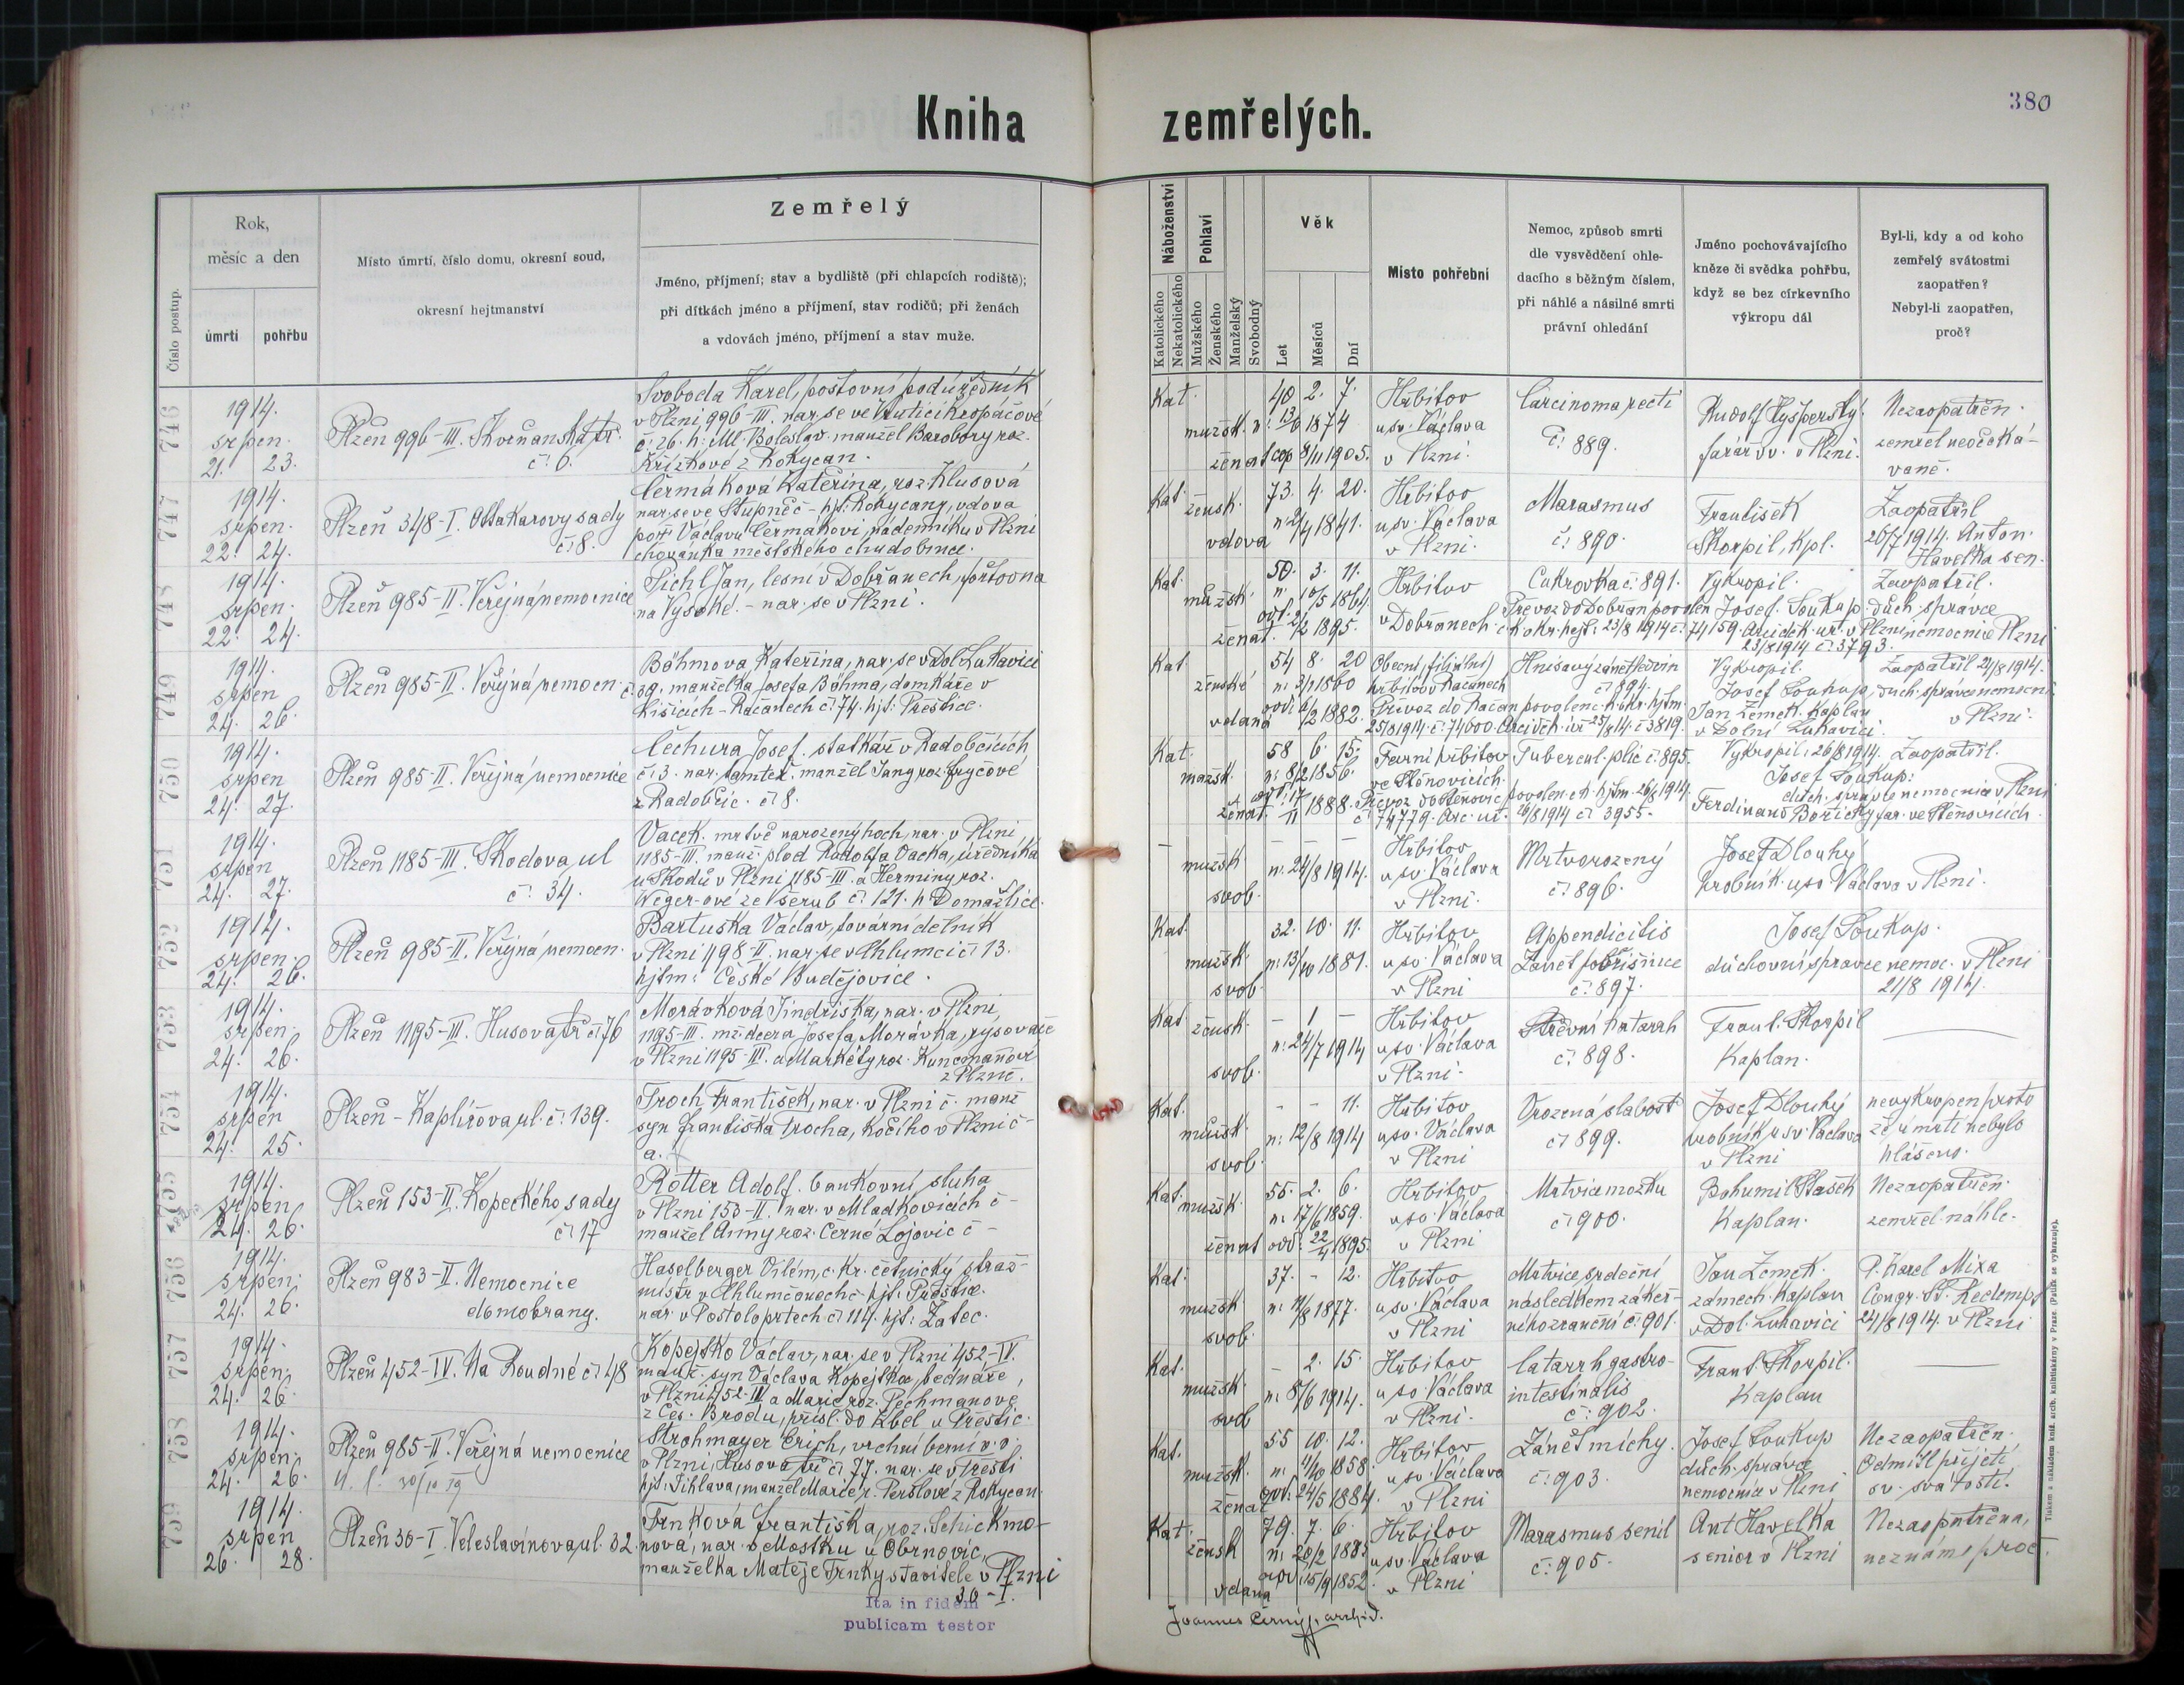 380
Kniha zemřelých.
Číslo postup.
Rok,
měsíc a den
úmrtí
pohřbu
Místo úmrtí, číslo domu, okresní soud,
okresní hejtmanství
Zemřelý
Jméno, příjmení; stav a bydliště (při chlapcích rodiště);
při dítkách jméno a příjmení, stav rodičů; při ženách
a vdovách jméno, příjmení a stav muže.
Náboženství
Katolického
Nekatolického
Pohlaví
Mužského
Ženského
Manželský
Svobodný
Věk
Let
Měsíců
Dní
Místo pohřební
Nemoc, způsob smrti
dle vysvědčení ohle-
dacího s běžným číslem,
při náhlé a násilné smrti
právní ohledání
Jméno pochovávajícího
kněze či svědka pohřbu,
když se bez církevního
výkropu dál
Byl-li, kdy a od koho
zemřelý svátostmi
zaopatřen?
Nebyl-li zaopatřen,
proč?
746
1914.
srpen.
21. 23.
Plzeň 996-III. Skvrňanská tř.
č. 6.
Svoboda Karel, poštovní podúředník
v Plzni 996-III. nar. se ve
č. 26. h: Ml. Boleslav. manžel Barobory roz.
Křížkové z Rokycan.
Kat. mužsk. ženat
40 2. 7.
n: 13/6 1874
cop 8/11 1905.
Hřbitov
u sv. Václava
v Plzni.
Carcinoma recti
č. 889.
Rudolf
farář v. v Plzni.
Nezaopatřen.
zemřel neočeká-
vaně.
747
1914.
srpen.
22. 24.
Plzeň 348-I. Otakarovy sady
č. 8.
Čermáková Kateřina, roz. Klusová
nar. se ve Stupně č - hjt: Rokycany, vdova
poř Václavu Čermákovi, nádenníku v Plzni
chovánka městského chudobince.
Kat. žensk. vdova
73. 4. 20.
n: 2/4 1841.
Hřbitov
u sv. Václava
v Plzni.
Marasmus
č. 890.
František
Škorpil, kpl.
Zaopatřil
26/7 1914. Anton.
Havelka sen.
748
1914.
srpen.
22. 24.
Plzeň 985-II. Veřejná nemocnice
Pichl Jan, lesní v Dobřanech,
na Vysoké. - nar. se v Plzni.
Kat. mužsk. ženat.
50. 3. 11.
n. 10/5 1864.
odd. 2/2 1895.
Hřbitov
v Dobřanech.
Cukrovka č. 891.
Převoz do Dobřan povolen
c k okr. hejt. 23/8 1914 č. 74159. Arciděk. úř. v Plzni
23/8 1914 č. 3793.
Vykropil.
Josef Soukup. duch. správce
nemocnice Plzni
Zaopatřil.
749
1914.
srpen
24. 26.
Plzeň 985-II. Veřejná nemocn.
Böhmova Kateřina, nar. se v Dol. Lukavici
č. 39. manželka Josefa Böhma, domkáře v
Kišicích - Račanech č. 74. hjt: Přeštice.
Kat. ženské vdaná
54 8. 20
n: 3/1 1860
1882.
Obecní (filiální)
hřbitov v Račanech
Hnisavý zánět ledvin
č. 894.
Převoz do Račan povolen c. k. okr. hjtm.
25/8 1914 č. 74600. Arciděk. úř. 25/8 14. č 3819.
Vykropil.
Josef Soukup, duch. správce nemocni.
v Plzni.
Jan Zemek. Kaplan
v Dolní Lukavici.
Zaopatřil 21/8 1914.
750
1914.
srpen
24. 27.
Plzeň 985-II. Veřejná nemocnice
Čechura Josef. statkář v Radobčicích
č. 3. nar. tamtéž. manžel Jany roz. Fryčové
z Radobčic. č. 8.
Kat. mužsk. ženat.
58 6. 15.
n: 8/2 1856.
odd. 17/11 1888.
Farní hřbitov
ve Štěnovicích.
Tubercul. plic č. 895.
Převoz do Štěnovic povolen c k. hjtm. 26/8 1914
č. 74779. Arc. úř. 26/8 1914 č. 3955.
Vykropil: 26/8 1914.
Josef Soukup:
duch. správce nemocnice v Plzni
Ferdinand Bořický far. ve Štěnovicích.
Zaopatřil.
751
1914.
srpen
24. 27.
Plzeň 1185-III. Škodova ul
č. 34.
Vacek. mrtvě narozený hoch, nar. v Plzni
1185-III. manž. plod Rudolfa Vacka, úředníka
u Škodů v Plzni 1185-III. a Herminy roz.
Weger-ové ze Všerub č. 121. h Domažlice.
- mužsk. svob.
- - -
n: 24/8 1914.
Hřbitov
u sv. Václava
v Plzni.
Mrtvorozený
č. 896.
Josef Dlouhý
hrobník u sv. Václava v Plzni.
752
1914.
srpen.
24. 26.
Plzeň 985-II. Veřejná nemocn.
Bartuška Václav, tovární dělník
v Plzni 498-II. nar. se v Chlumci č. 13.
hjtm: České Budějovice.
Kat. mužsk. svob.
32. 10. 11.
n: 13/10 1881.
Hřbitov
u sv. Václava
v Plzni
Appendicitis
Zánět pobřišnice
č. 897.
Josef Soukup.
duchovní správce nemoc. v Plzni
21/8 1914.
753
1914.
srpen.
24. 26.
Plzeň 1195-III. Husova tř č. 76
Morávková Jindřiška, nar. v Plzni,
1195-III. mž. dcera Josefa Morávka, rysovače
v Plzni 1195-III. a Markéty roz. Kuncmanovi
z Plzně.
Kat. žensk. svob.
- 1 -
n: 24/7 1914
Hřbitov
u sv. Václava
v Plzni.
Střevní katarah
č. 898.
Frant. Škorpil
Kaplan.
754
1914.
srpen
24. 25.
Plzeň - Kaplířova ul. č. 139.
Troch František, nar. v Plzni č. manž
syn Františka Trocha, kočího v Plzni č -
a.
Kat. mužsk. svob.
- - 11.
n: 12/8 1914
Hřbitov
u sv. Václava
v Plzni
Vrozená slabost
č. 899.
Josef Dlouhý
hrobník u sv. Václava
v Plzni
nevykropen proto
že úmrtí nebylo
hlášeno.
755
1914.
srpen
24. 26.
Plzeň 153-II. Kopeckého sady
č. 17
Rotter Adolf. bankovní sluha
v Plzni 153-II. nar. v Mladkovicích č -
manžel Anny roz. Černé Lojovic č -
Kat. mužsk. ženat
55. 2. 6.
n. 17/6 1859.
odd. 22/4 1895.
Hřbitov
u sv. Václava
v Plzni
Mrtvice mozku
č. 900.
Bohumil Stašek
Kaplan.
Nezaopatřen.
zemřel náhle.
756
1914.
srpen.
24. 26.
Plzeň 983-II. Nemocnice
domobrany.
Haselberger Vilém, c. kr. četnický straž-
mistr v Chlumčanech č - hjt. Přeštice.
nar. v Postoloprtech č. 114. hjt. Žatec.
Kat. mužsk svob.
37. - 12.
n: 11/8 1877.
Hřbitov
u sv. Václava
v Plzni
Mrtvice srdeční
následkem zákeř-
ného zranění č. 901.
Jan Zemek.
zámeck. kaplan
v Dol. Lukavici
P. Karel Mixa
Congr. SS. Redempt
24/8 1914. v Plzni
757
1914.
srpen.
24. 26.
Plzeň 452-IV. Na Roudné č. 48
Kopejsko Václav, nar. se v Plzni 452-IV.
manž. syn Václava Kopejska, bednáře,
v Plzni 452-IV. a Marie roz. Pechmanové
z Čes. Brodu, přísl. do Zbel. u Přeštic.
Kat. mužsk. svob
- 2. 15.
n: 8/6 1914.
Hřbitov
u sv. Václava
v Plzni.
Catarrh gastro-
intestinalis
č. 902.
Frant. Škorpil.
Kaplan
758
1914.
srpen.
24. 26.
Plzeň 985-II. Veřejná nemocnice
Strohmayer Erich, vrchní berní
v Plzni, Husova tř č. 77. nar. se v Třešti
hjt: Jihlava, manžel Marie, r. Perslové z Rokycan.
Kat. mužsk. ženat
55 10. 12.
n: 1858.
odd. 24/5 1884.
Hřbitov
u sv. Václava
v Plzni
Zánět míchy.
č. 903.
Josef Soukup
duch. správce
nemocnice v Plzni
Nezaopatřen.
Odmítl přijetí
sv. svátostí.
759
1914.
srpen
26. 28.
Plzeň 30-I. Veleslavínova ul. 32.
Trnková Františka, roz. Schickmo-
nová, nar. v Mostku u Obrnovic,
manželka Matěje Trnky stavitele v Plzni
30-I.
Kat. žensk vdaná
79. 7. 6.
n: 20/2 1835
odd. 15/9 1852.
Hřbitov
u sv. Václava
v Plzni
Marasmus senil
č. 905.
Ant Havelka
senior v Plzni
Nezaopatřena,
neznámo proč.
Ita in fidem
publicam testor
Joannes Černý, archid.
Tiskem a nákladem kníž. arcib. knihtiskárny v Praze. (Padělek se vyhrazuje).